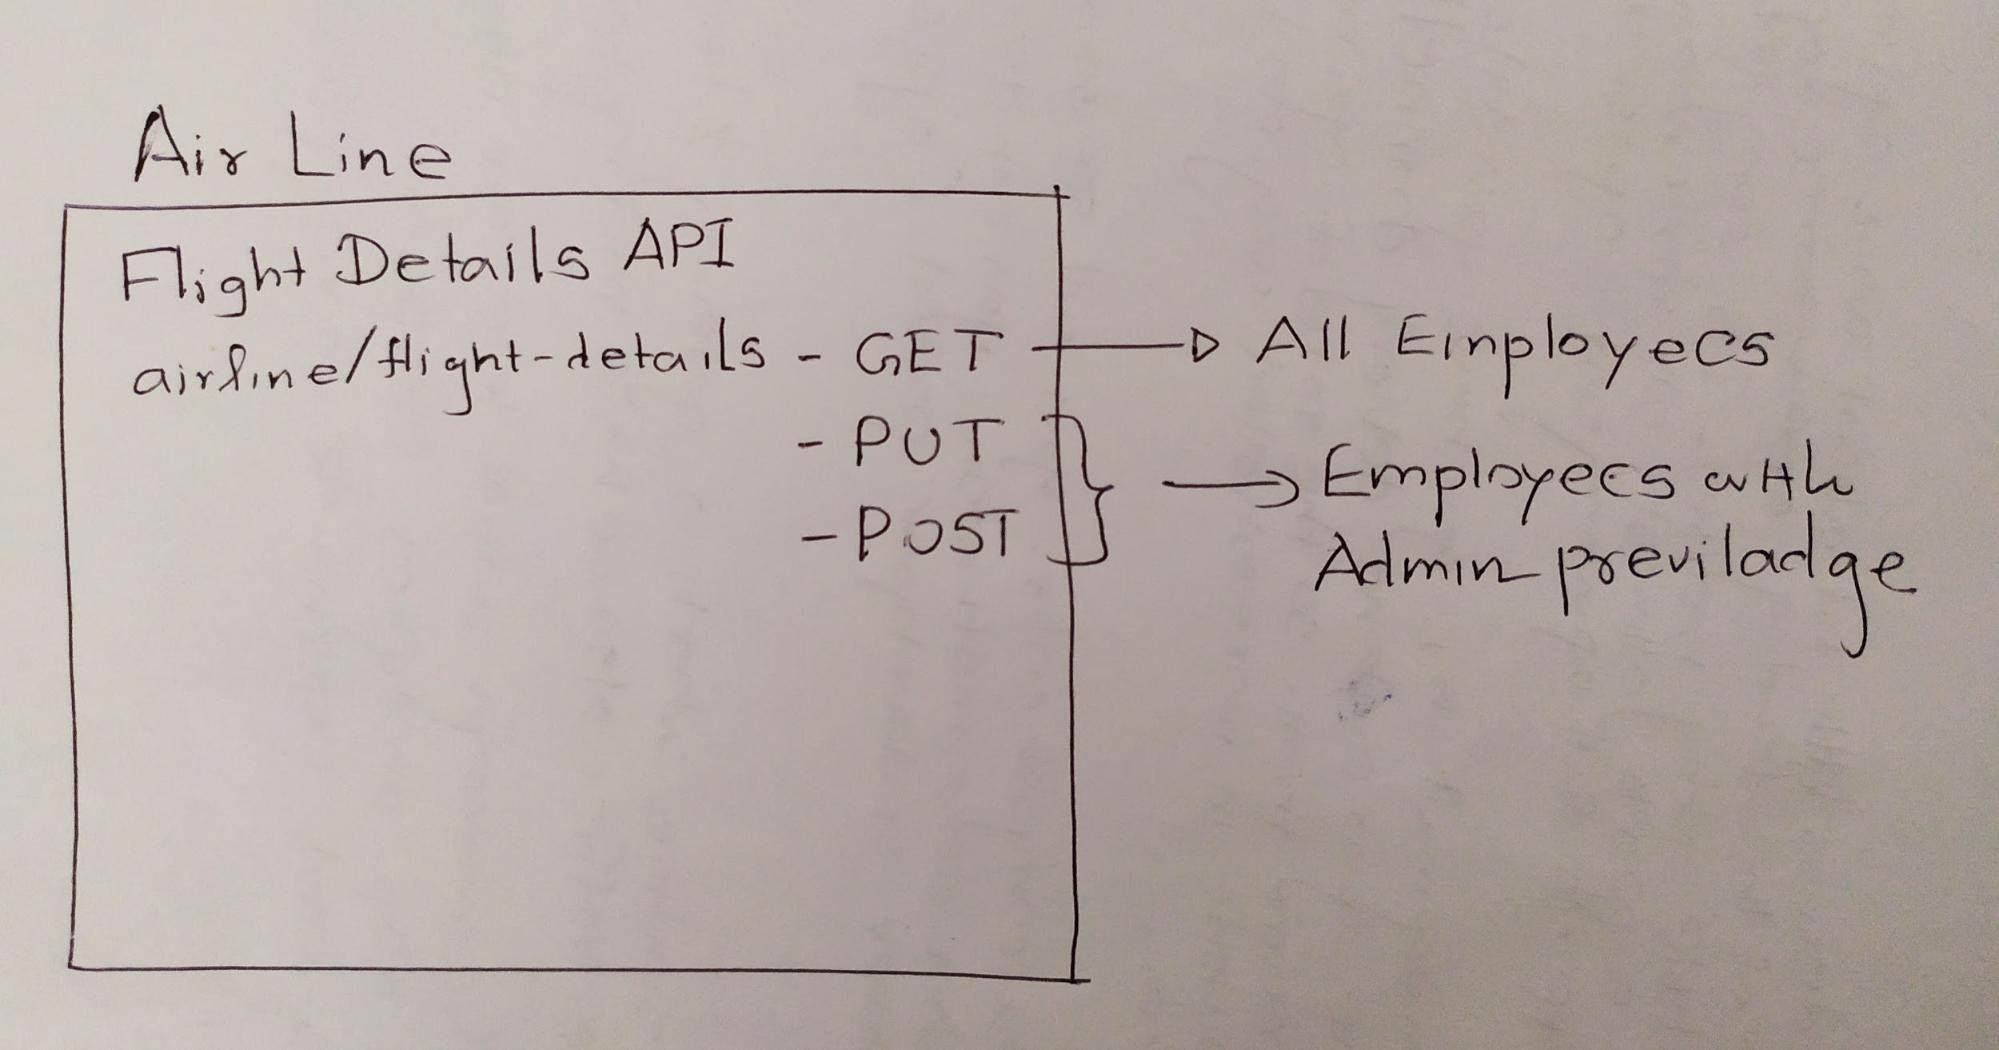 Air Line
Flight Details API
airline/flight-details - GET → All Employees
- PUT
- POST
→ Employees with
Admin previladge